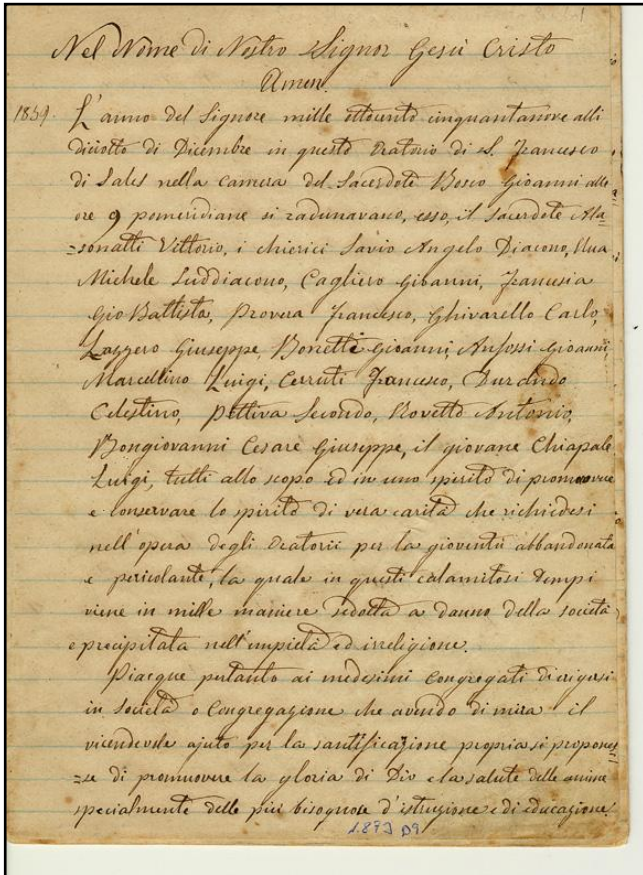 Nel Nome di Nostro Signor Gesù Cristo
Amen.
1859. L'anno del Signore mille ottocento cinquantanove alli
diciotto di Dicembre in questo Oratorio di S. Francesco
di Sales nella camera del Sacerdote Bosco Gioanni alle
ore 9 pomeridiane si radunavano, esso, il Sacerdote Ala=
=sonatti Vittorio, i chierici Savio Angelo Diacono, Rua
Michele Suddiacono, Cagliero Gioanni, Francesia
Gio Battista, Provera Francesco, Ghivarello Carlo,
Lazzero Giuseppe, Bonetti Gioanni, Anfossi Gioanni,
Marcellino Luigi, Cerruti Francesco, Durando
Celestino, Pettiva Secondo, Rovetto Antonio,
Bongiovanni Cesare Giuseppe, il giovane Chiapale
Luigi, tutti allo scopo ed in uno spirito di promuovere
e conservare lo spirito di vera carità che richiedesi
nell'opera degli Oratorii per la gioventù abbandonata
e pericolante, la quale in questi calamitosi tempi
viene in mille maniere sedotta a danno della società
e precipitata nell'empietà ed irreligione.
Piacque pertanto ai medesimi Congregati di erigersi
in Società o Congregazione che avendo di mira il
vicendevole ajuto per la santificazione propria si propones=
=se di promuovere la gloria di Dio e la salute delle anime
specialmente delle più bisognose d'istruzione e di educazione